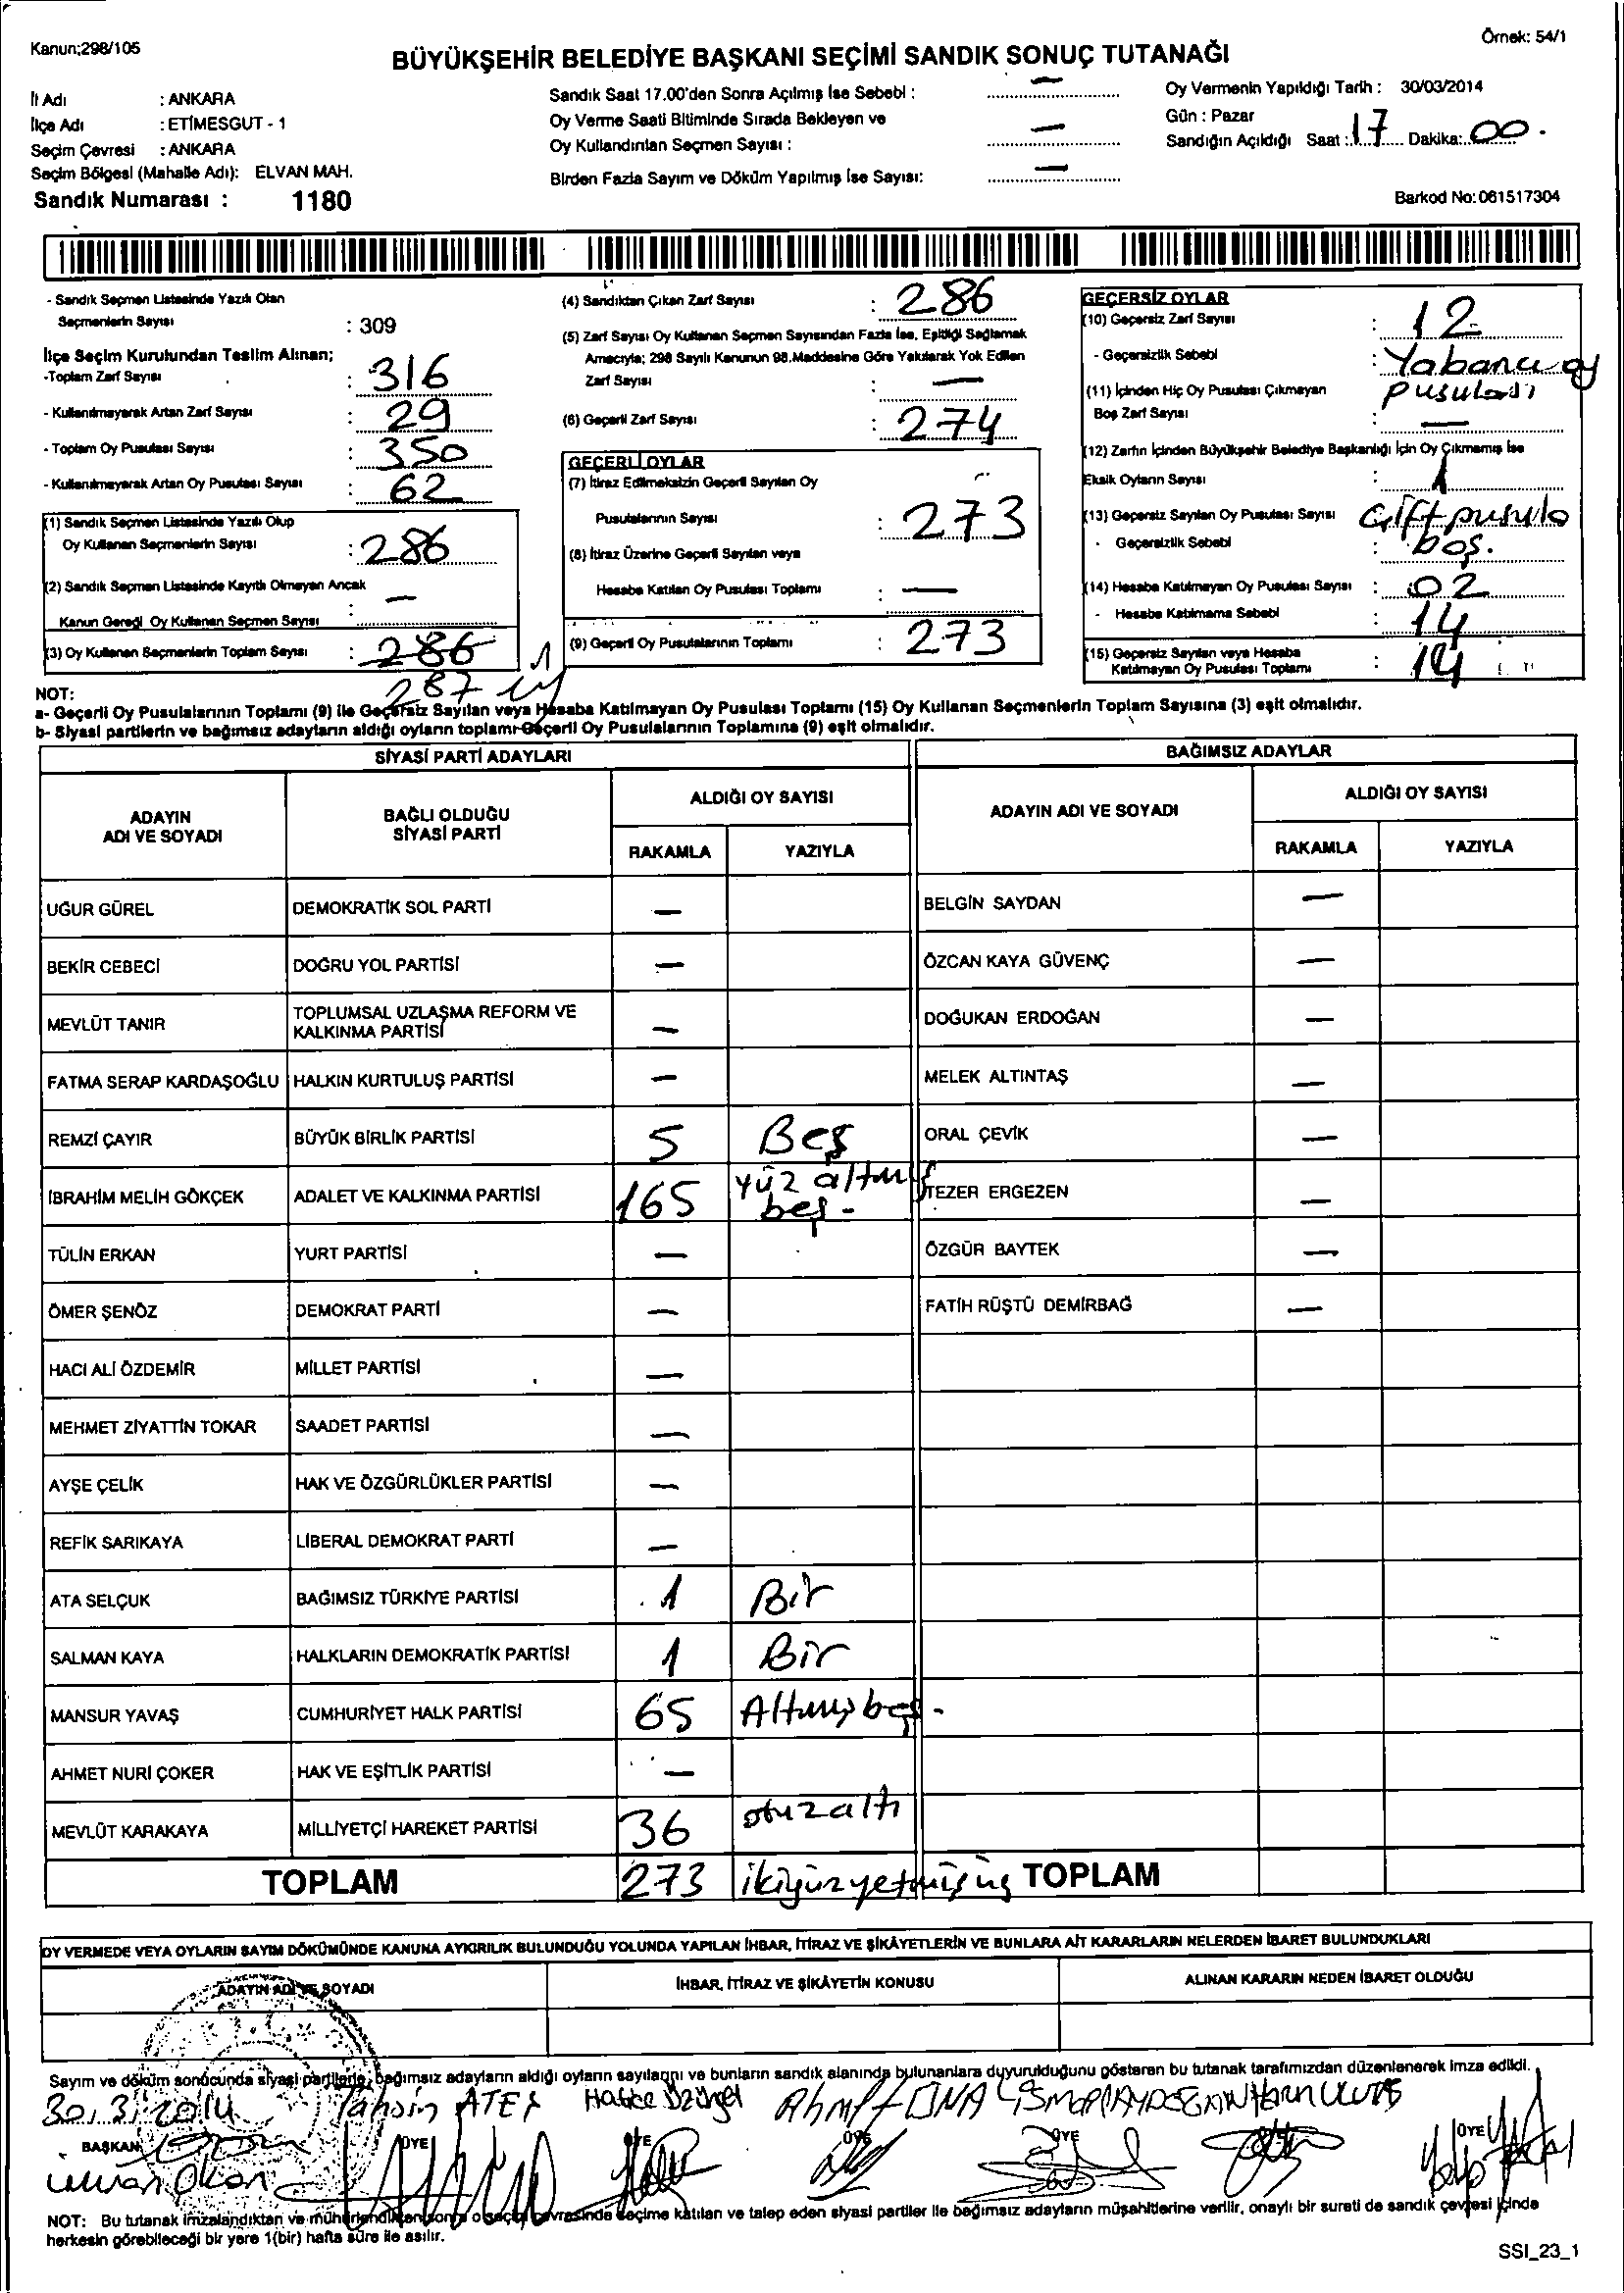 Kanun;298/105
Örnek: 54/1
BÜYÜKŞEHİR BELEDİYE BAŞKANI SEÇİMİ SANDIK SONUÇ TUTANAĞI
İl Adı : ANKARA
İlçe Adı : ETİMESGUT - 1
Seçim Çevresi : ANKARA
Seçim Bölgesi (Mahalle Adı): ELVAN MAH.
Sandık Numarası : 1180
Sandık Saat 17.00'den Sonra Açılmış İse Sebebi : —
Oy Verme Saati Bitiminde Sırada Bekleyen ve
Oy Kullandırılan Seçmen Sayısı : —
Birden Fazla Sayım ve Döküm Yapılmış İse Sayısı: —
Oy Vermenin Yapıldığı Tarih : 30/03/2014
Gün : Pazar
Sandığın Açıldığı Saat : 17 Dakika: 00.
Barkod No:061517304
- Sandık Seçmen Listesinde Yazılı Olan
Seçmenlerin Sayısı : 309
İlçe Seçim Kurulundan Teslim Alınan;
-Toplam Zarf Sayısı : 316
- Kullanılmayarak Artan Zarf Sayısı : 29
- Toplam Oy Pusulası Sayısı : 350
- Kullanılmayarak Artan Oy Pusulası Sayısı : 62
(1) Sandık Seçmen Listesinde Yazılı Olup
Oy Kullanan Seçmenlerin Sayısı : 286
(2) Sandık Seçmen Listesinde Kayıtlı Olmayan Ancak
Kanun Gereği Oy Kullanan Seçmen Sayısı : —
(3) Oy Kullanan Seçmenlerin Toplam Sayısı : 286
287
(4) Sandıktan Çıkan Zarf Sayısı : 286
(5) Zarf Sayısı Oy Kullanan Seçmen Sayısından Fazla İse, Eşitliği Sağlamak
Amacıyla; 298 Sayılı Kanunun 98.Maddesine Göre Yakılarak Yok Edilen
Zarf Sayısı : —
(6) Geçerli Zarf Sayısı : 274
GEÇERLİ OYLAR
(7) İtiraz Edilmeksizin Geçerli Sayılan Oy
Pusulalarının Sayısı : 273
(8) İtiraz Üzerine Geçerli Sayılan veya
Hesaba Katılan Oy Pusulası Toplamı : —
(9) Geçerli Oy Pusulalarının Toplamı : 273
GEÇERSİZ OYLAR
(10) Geçersiz Zarf Sayısı : 12
- Geçersizlik Sebebi : Yabancı oy
pusulası
(11) İçinden Hiç Oy Pusulası Çıkmayan
Boş Zarf Sayısı : —
(12) Zarfın İçinden Büyükşehir Belediye Başkanlığı İçin Oy Çıkmamış İse
Eksik Oyların Sayısı : 1
(13) Geçersiz Sayılan Oy Pusulası Sayısı Çift pusula
- Geçersizlik Sebebi : boş.
(14) Hesaba Katılmayan Oy Pusulası Sayısı : 02
- Hesaba Katılmama Sebebi : 14
(15) Geçersiz Sayılan veya Hesaba
Katılmayan Oy Pusulası Toplamı : 14
NOT:
a- Geçerli Oy Pusulalarının Toplamı (9) ile Geçersiz Sayılan veya Hesaba Katılmayan Oy Pusulası Toplamı (15) Oy Kullanan Seçmenlerin Toplam Sayısına (3) eşit olmalıdır.
b- Siyasi partilerin ve bağımsız adayların aldığı oyların toplamı Geçerli Oy Pusulalarının Toplamına (9) eşit olmalıdır.
SİYASİ PARTİ ADAYLARI
BAĞIMSIZ ADAYLAR
ADAYIN
ADI VE SOYADI
BAĞLI OLDUĞU
SİYASİ PARTİ
ALDIĞI OY SAYISI
RAKAMLA YAZIYLA
ADAYIN ADI VE SOYADI
ALDIĞI OY SAYISI
RAKAMLA YAZIYLA
UĞUR GÜREL DEMOKRATİK SOL PARTİ — BELGİN SAYDAN —
BEKİR CEBECİ DOĞRU YOL PARTİSİ — ÖZCAN KAYA GÜVENÇ —
MEVLÜT TANIR TOPLUMSAL UZLAŞMA REFORM VE
KALKINMA PARTİSİ — DOĞUKAN ERDOĞAN —
FATMA SERAP KARDAŞOĞLU HALKIN KURTULUŞ PARTİSİ — MELEK ALTINTAŞ —
REMZİ ÇAYIR BÜYÜK BİRLİK PARTİSİ 5 Beş ORAL ÇEVİK —
İBRAHİM MELİH GÖKÇEK ADALET VE KALKINMA PARTİSİ 165 yüz altmış
beş - TEZER ERGEZEN —
TÜLİN ERKAN YURT PARTİSİ — ÖZGÜR BAYTEK —
ÖMER ŞENÖZ DEMOKRAT PARTİ — FATİH RÜŞTÜ DEMİRBAĞ —
HACI ALİ ÖZDEMİR MİLLET PARTİSİ —
MEHMET ZİYATTİN TOKAR SAADET PARTİSİ —
AYŞE ÇELİK HAK VE ÖZGÜRLÜKLER PARTİSİ —
REFİK SARIKAYA LİBERAL DEMOKRAT PARTİ —
ATA SELÇUK BAĞIMSIZ TÜRKİYE PARTİSİ 1 Bir
SALMAN KAYA HALKLARIN DEMOKRATİK PARTİSİ 1 Bir
MANSUR YAVAŞ CUMHURİYET HALK PARTİSİ 65 Altmışbeş -
AHMET NURİ ÇOKER HAK VE EŞİTLİK PARTİSİ —
MEVLÜT KARAKAYA MİLLİYETÇİ HAREKET PARTİSİ 36 otuzaltı
TOPLAM 273 ikiyüzyetmişüç TOPLAM
OY VERMEDE VEYA OYLARIN SAYIM DÖKÜMÜNDE KANUNA AYKIRILIK BULUNDUĞU YOLUNDA YAPILAN İHBAR, İTİRAZ VE ŞİKÂYETLERİN VE BUNLARA AİT KARARLARIN NELERDEN İBARET BULUNDUKLARI
ADAYIN ADI VE SOYADI İHBAR, İTİRAZ VE ŞİKÂYETİN KONUSU ALINAN KARARIN NEDEN İBARET OLDUĞU
Sayım ve döküm sonucunda siyasi partilerle, bağımsız adayların aldığı oyların sayılarını ve bunların sandık alanında bulunanlara duyurulduğunu gösteren bu tutanak tarafımızdan düzenlenerek imza edildi.
30.3.2014 Tahsin ATEŞ Hatice
BAŞKAN ÜYE ÜYE ÜYE ÜYE ÜYE
NOT: Bu tutanak imzalandıktan ve mühürlendikten sonra o seçim çevresinde seçime katılan ve talep eden siyasi partiler ile bağımsız adayların müşahitlerine verilir, onaylı bir sureti de sandık çevresi içinde
herkesin görebileceği bir yere 1(bir) hafta süre ile asılır.
SSI_23_1